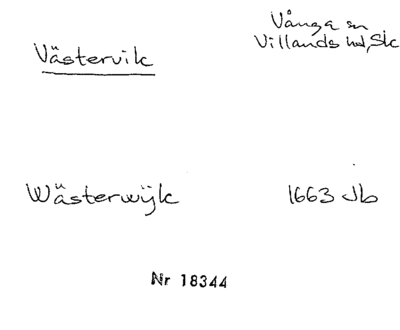 Västervik
Vånga sn
Villands hd, Sk
Wästerwijk
1663 Jb
Nr 18344